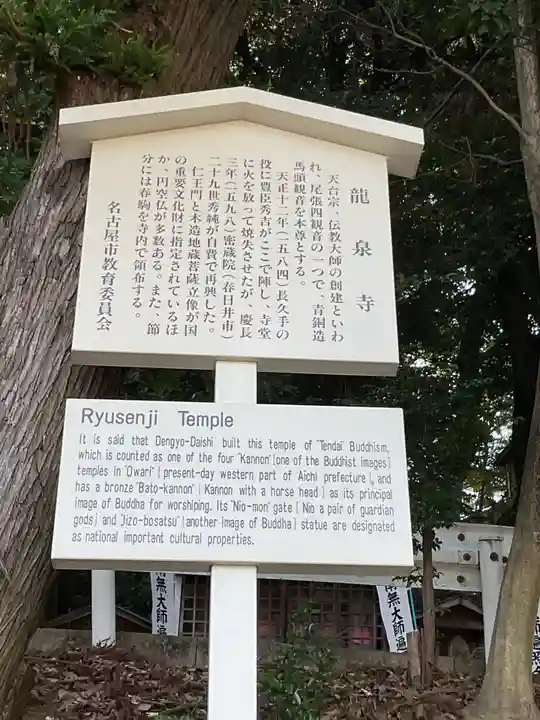 龍泉寺
天台宗、伝教大師の創建といわ
れ、尾張四観音の一つで、青銅造
馬頭観音を本尊とする。
天正十二年(一五八四)長久手の
役に豊臣秀吉がここで陣し、寺堂
に火を放って焼失させたが、慶長
三年(一五九八)密蔵院(春日井市)
二十九世秀純が自費で再興した。
仁王門と木造地蔵菩薩立像が国
の重要文化財に指定されているほ
か、円空仏が多数ある。また、節
分には春駒を寺内で領布する。
名古屋市教育委員会
Ryusenji Temple
It is said that Dengyo-Daishi built this temple of "Tendai" Buddhism,
which is counted as one of the four "Kannon" [one of the Buddhist images]
temples in "Owari" [present-day western part of Aichi prefecture], and
has a bronze "Bato-kannon" [Kannon with a horse head] as its principal
image of Buddha for worshiping. Its "Nio-mon" gate [Nio a pair of guardian
gods] and "Jizo-bosatsu" [another image of Buddha] statue are designated
as national important cultural properties.
無大師遍
南無大師遍